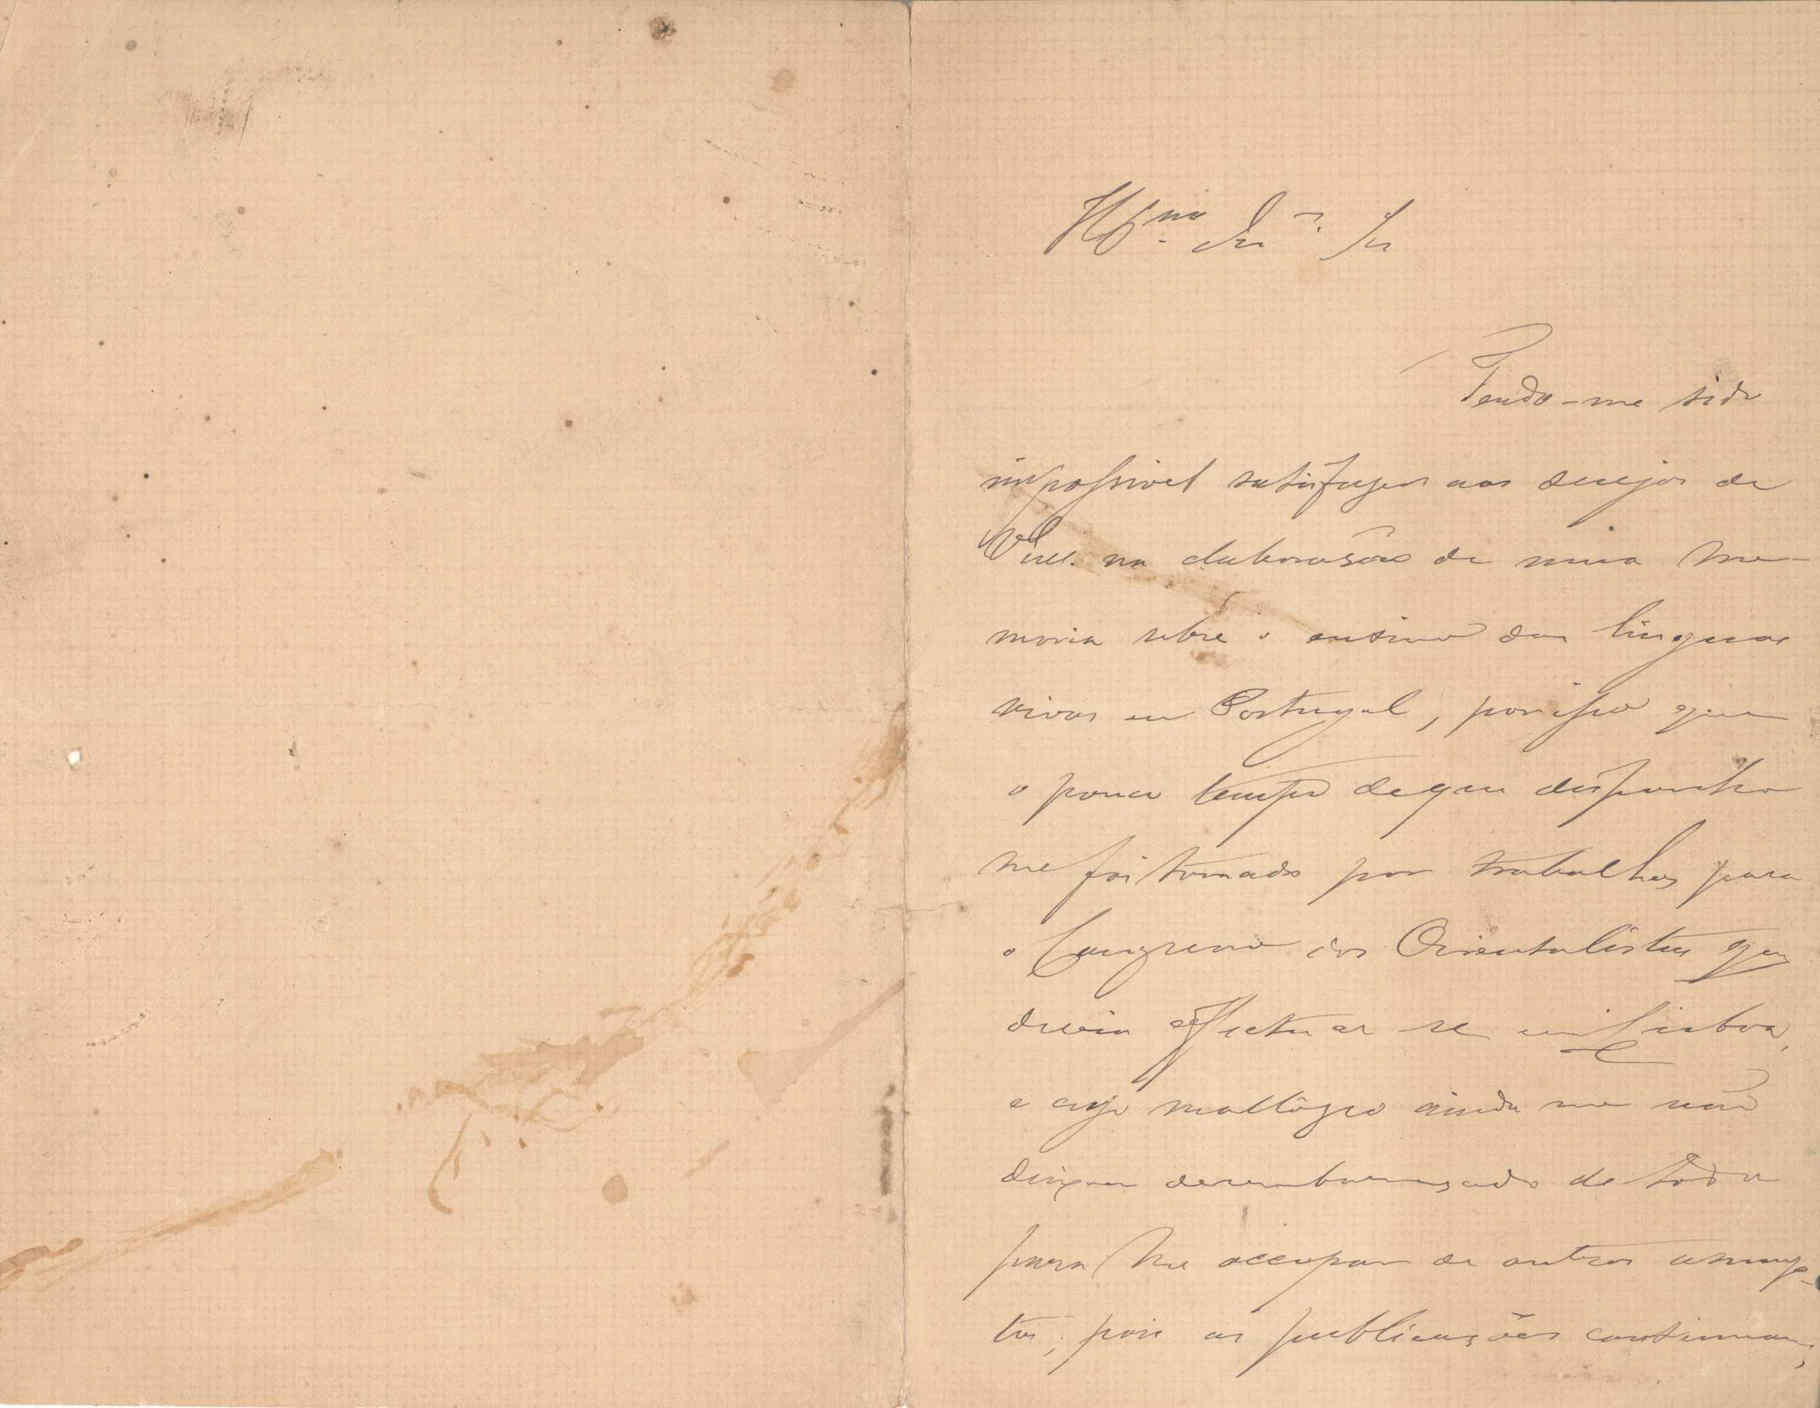 Ill.mo Sr.
Tendo-me sido
impossivel satisfazer aos desejos de
V. na elaborasão de uma me-
moria sobre o ensino das linguas
vivas em Portugal, porisso que
o pouco tempo de que dispunha
me foi tomado por trabalhos para
o Congresso dos Orientalistas que
devia effectuar se em Lisboa,
e cujo mallôgro ainda me não
deixou desembaraçado de todo
para me occupar de outros assump-
tos; pois as publicações continuam;